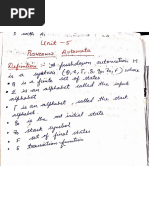 Unit - 5
Pushdown Automata
Definition :- A pushdown automaton M
is a system (Q, Σ, Γ, δ, q0, z0, F) where
• Q is a finite set of states
• Σ is an alphabet called the input
alphabet
• Γ is an alphabet, called the stack
alphabet
is the initial state
start symbol
set of final states
transition function